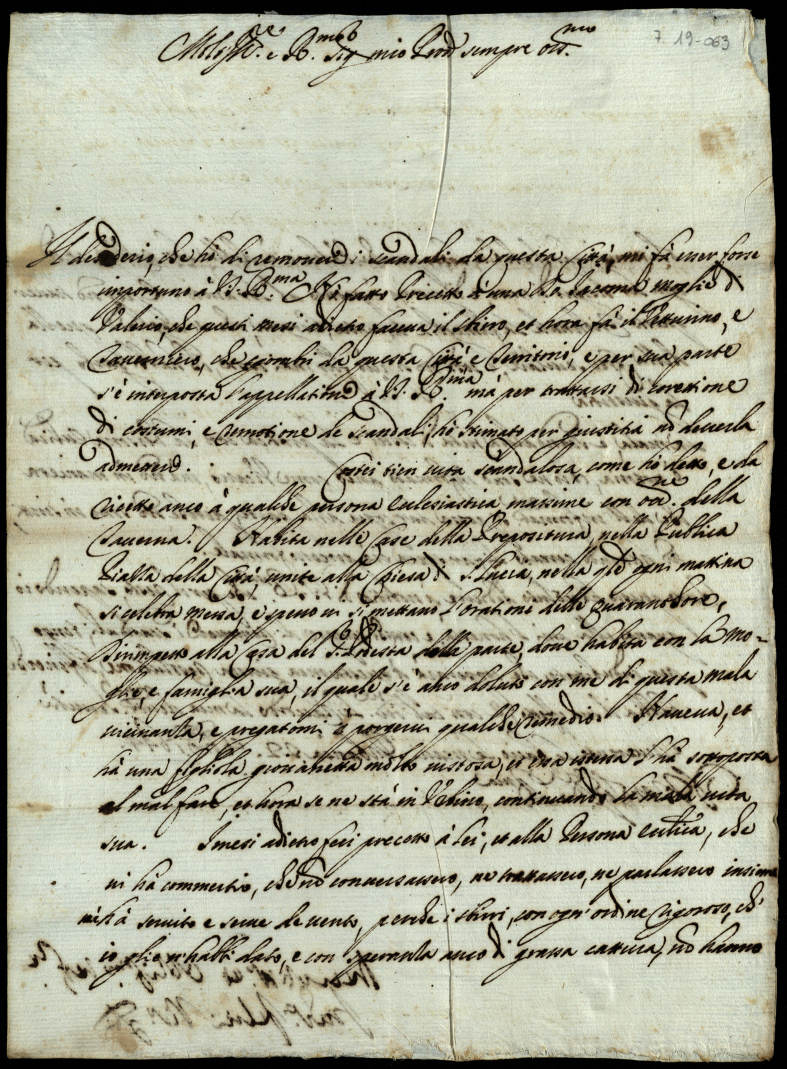 7. 19-063
Molto Ill.re e R.mo Sig. mio Prōn sempre oss.mo
Il desiderio, che hò di removere i scandali da questa Città, mi fà esser forse
importuno à V.S. R.ma Hò fatto precetto à una Iacoma moglie di
Valerio, che questi mesi adietro faceva il sbirro, et hora fà il Vetturino, e
Taverniero, che sgombri da questa Città e Territorio, e per sua parte
s'è interposta l'appellatione à V.S. R.ma mà per trattarsi di corretione
di costumi, e remotione de scandali, hò stimato per giustitia nō deverla
admettere. Costei tien vita scandalosa, come hò detto, e da
ricetto anco à qualche persona ecclesiastica massime con occ.ne della
Taverna. Habita nelle Case della Prepositura, nella Publica
Piazza della Città, unite alla Chiesa di S. Lucia, nella q̄le ogni mattina
si celebra messa, e spesso vi si mettano l'oratione delle quarant'hore,
dirimpetto alla Casa del S.r Podestà della parte, dove habita con la mo-
glie, e famiglia sua, il quale s'è anco doluto con me di questa mala
vicinanza, e pregatomi à porgervi qualche remedio. Haveva, et
hà una figliola giovanetta molto vistosa, et essa istessa l'hà sottoposta
al mal fare, et hora se ne stà in, continuando la mala vita
sua. I mesi adietro feci precetto à lei, et alla Persona eccl.ca, che
vi hà commertio, che nō conversassero, ne trattassero, ne parlassero insieme
mà hà servito e serve de vento, perche i sbirri, con ogn'ordine rigoroso, ch'
io glie n'habbi dato, e con speranza anco di grassa cattura, nō hanno